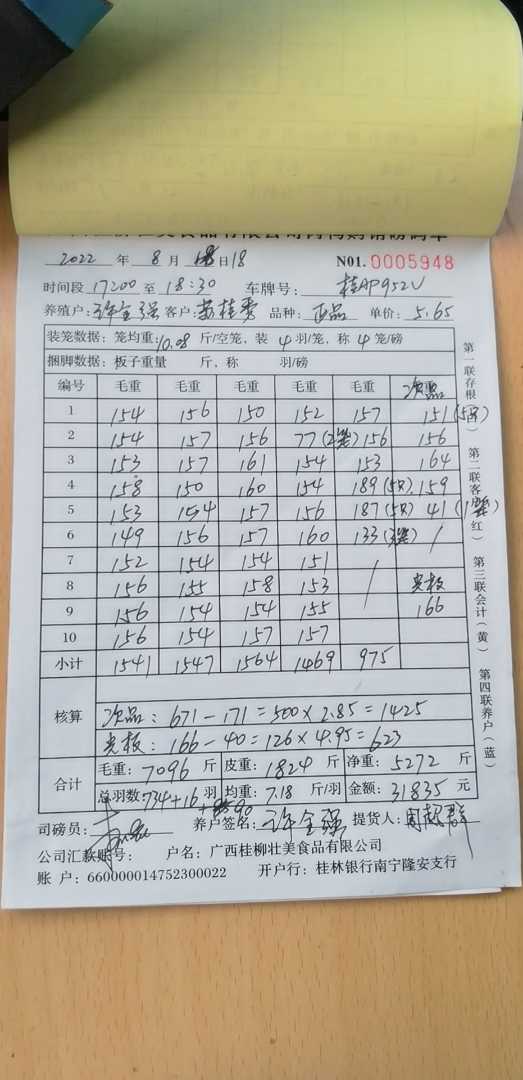 2022 年 8 月 18 日 18 N01. 0005948
时间段 17:00 至 18:30 车牌号: 桂AP952V
养殖户: 许全强 客户: 苏桂秀 品种: 正品 单价: 5.65
装笼数据: 笼均重: 10.08 斤/空笼, 装 4 羽/笼, 称 4 笼/磅
捆脚数据: 板子重量 斤, 称 羽/磅
编号 毛重 毛重 毛重 毛重 毛重 次品
1 154 156 150 152 157 151 (5只)
2 154 157 156 77 (2笼) 156 156
3 153 157 161 154 153 164
4 158 150 160 154 189 (5只) 159
5 153 154 157 156 187 (5只) 41 (1笼)
6 149 156 157 160 133 /
7 152 154 154 151
8 156 155 158 153 / 光板
9 156 154 154 155 166
10 156 154 157 157
小计 1541 1547 1564 1469 975
核算
次品: 671 - 171 = 500 × 2.85 = 1425
光板: 166 - 40 = 126 × 4.95 = 623
合计 毛重: 7096 斤 皮重: 1824 斤 净重: 5272 斤
总羽数: 734+16 羽 +90 均重: 7.18 斤/羽 金额: 31835 元
司磅员: 养户签名: 许全强 提货人: 周超群
公司汇款账号: 户名: 广西桂柳壮美食品有限公司
账 户: 660000014752300022 开户行: 桂林银行南宁隆安支行
第一联存根(白) 第二联客户(红) 第三联会计(黄) 第四联养户(蓝)